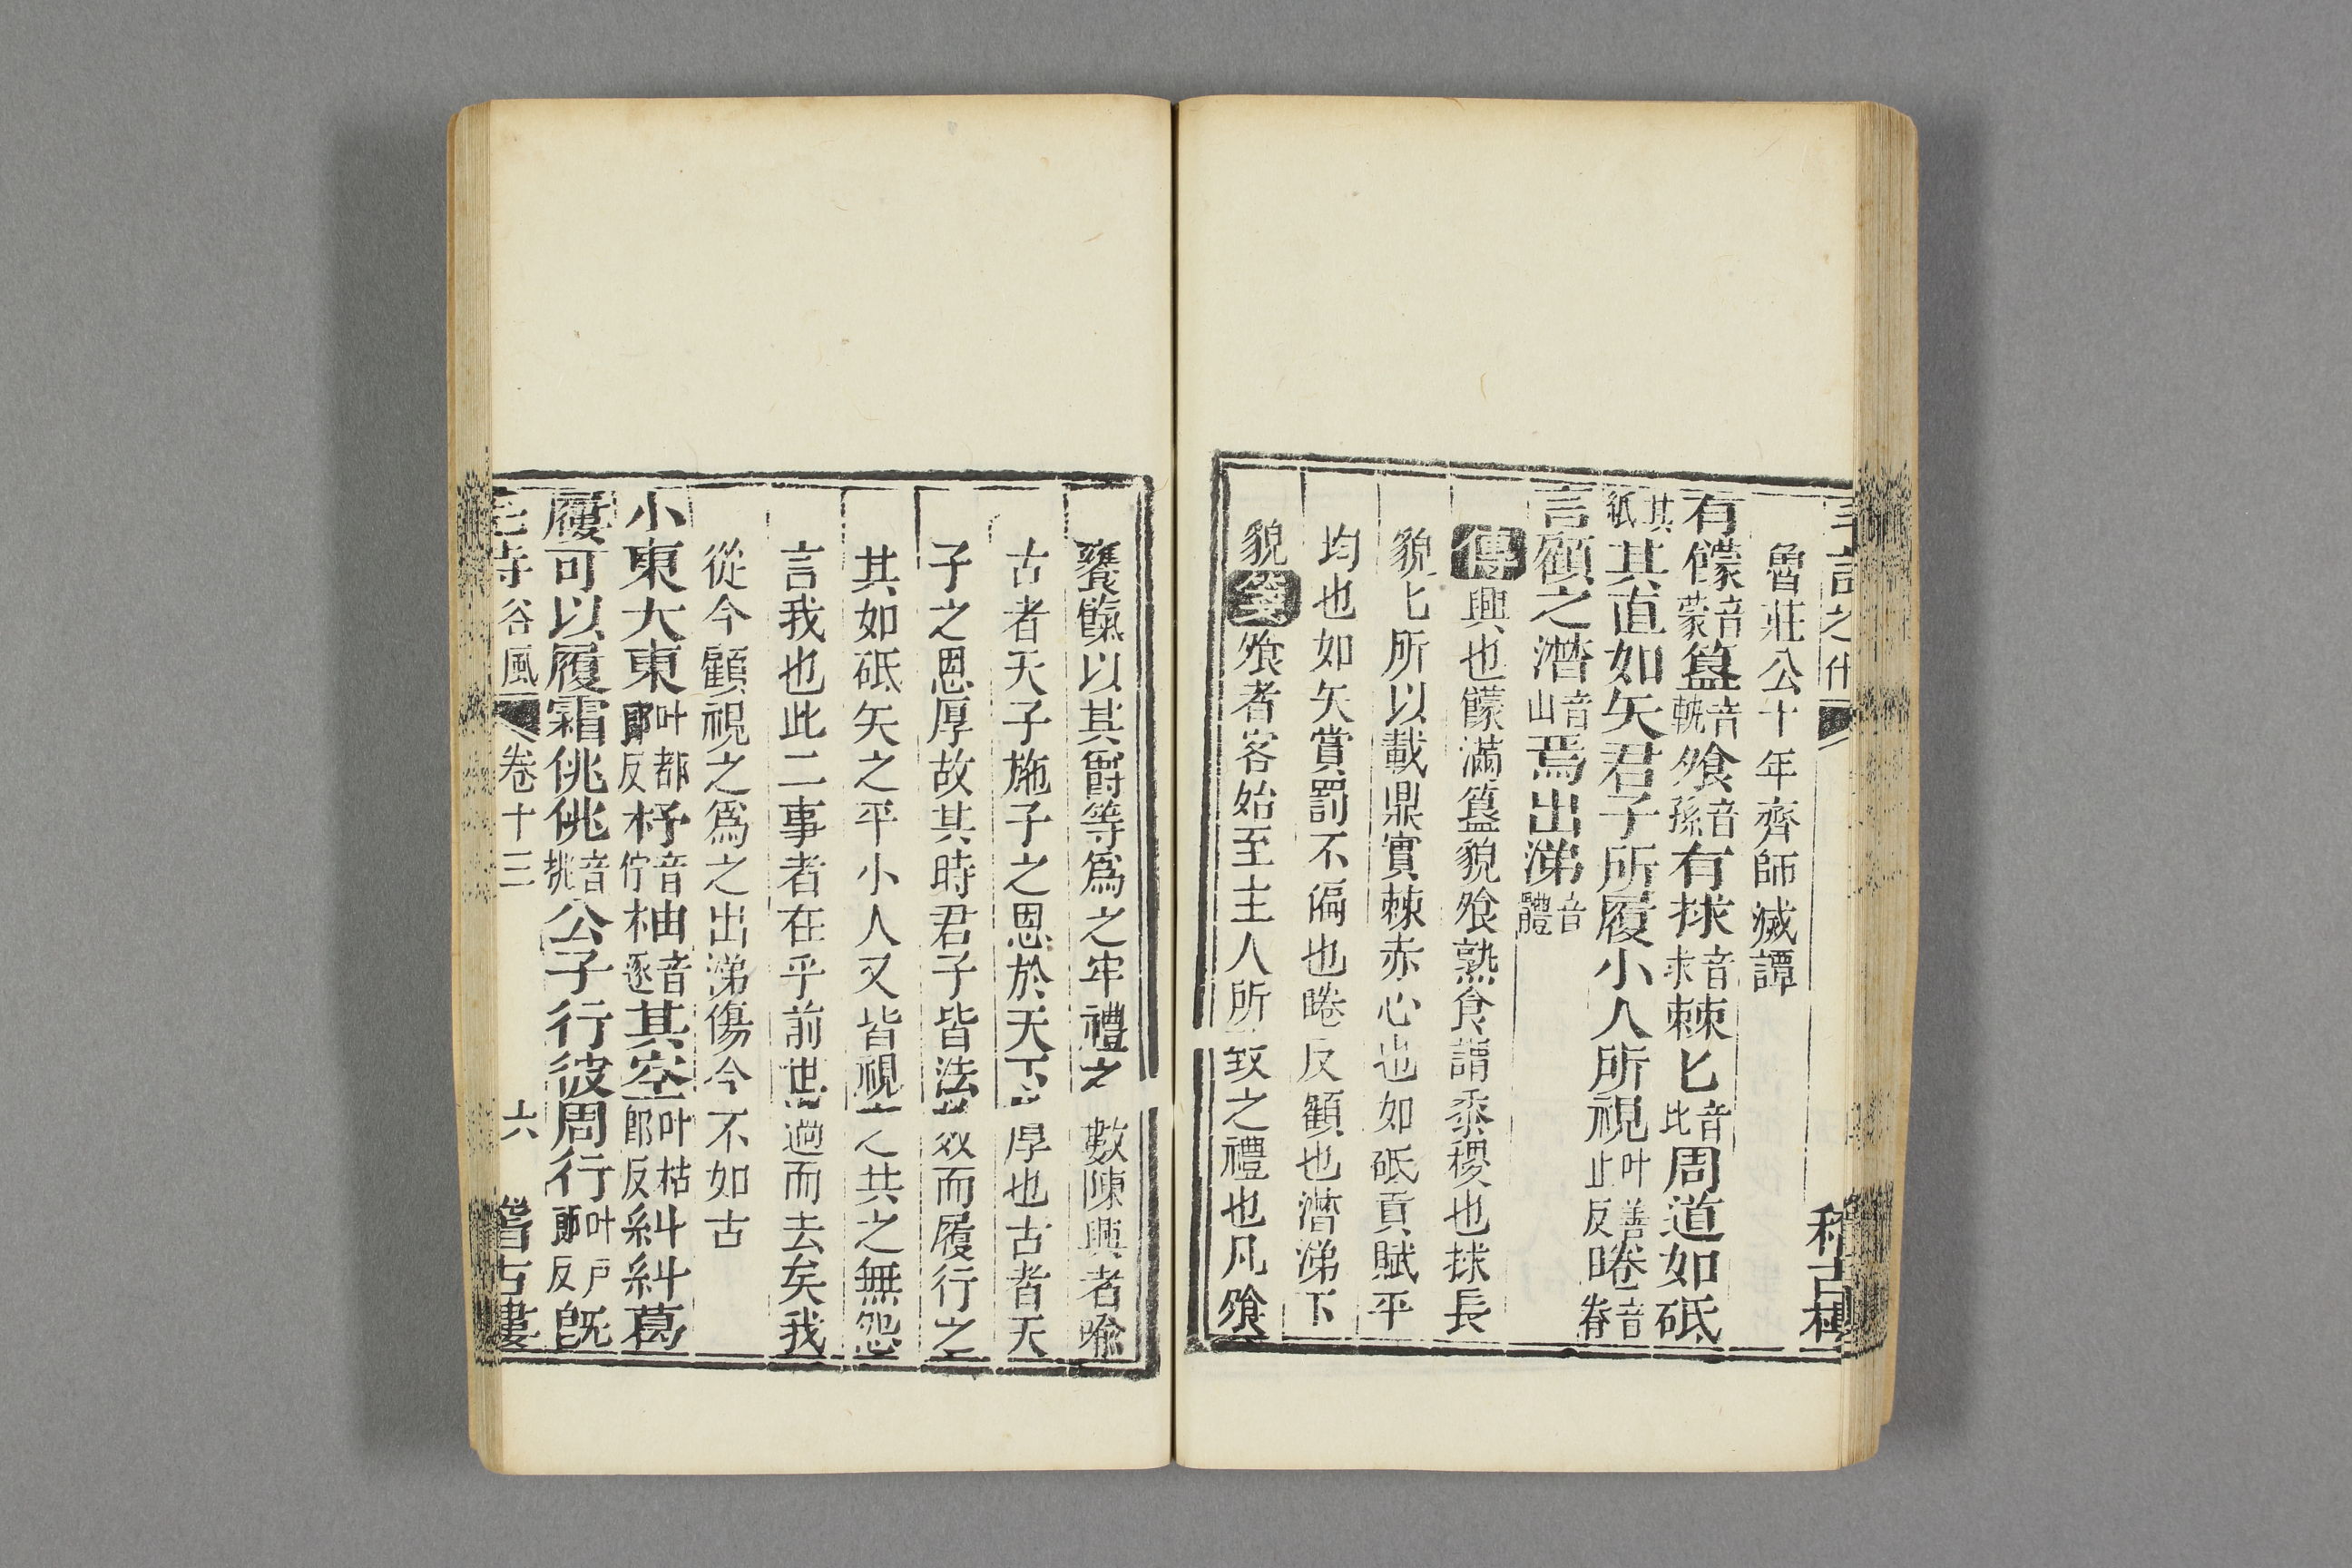 魯莊公十年齊師滅譚
有饛音蒙簋音軌飱音孫有捄音求棘匕音比周道如砥
其紙其直如矢君子所履小人所視叶善止反睠音眷
言顧之潸音山焉出涕音體
傳興也饛滿簋貌飱熟食謂黍稷也捄長
貌匕所以載鼎實棘赤心也如砥貢賦平
均也如矢賞罰不偏也睠反顧也潸涕下
貌箋飱者客始至主人所致之禮也凡飱
饔餼以其爵等爲之牢禮之數陳興者喩
古者天子施予之恩於天下厚也古者天
子之恩厚故其時君子皆法效而履行之
其如砥矢之平小人又皆視之共之無怨
言我也此二事者在乎前世過而去矣我
從今顧視之爲之出涕傷今不如古
小東大東叶都郞反杼音佇柚音逐其空叶枯郞反糾糾葛
屨可以履霜佻佻音挑公子行彼周行叶戶郞反旣
毛詩 谷風 卷十三 六